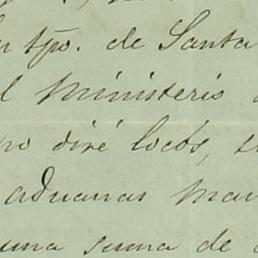 tpo. de Santa
Ministerio
diré locos,
aduanas
una suma de